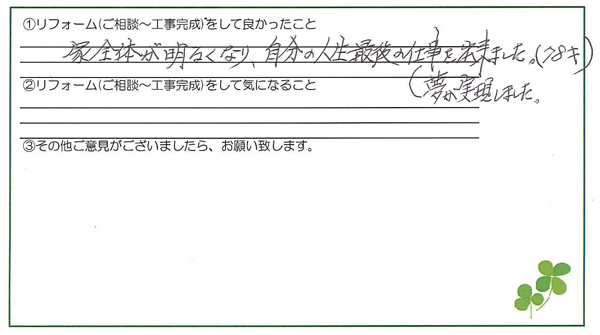 ①リフォーム(ご相談～工事完成)をして良かったこと
家全体が明るくなり、自分の人生最後の仕事を出来ました。(78才)
(夢が実現しました。
②リフォーム(ご相談～工事完成)をして気になること
③その他ご意見がございましたら、お願い致します。